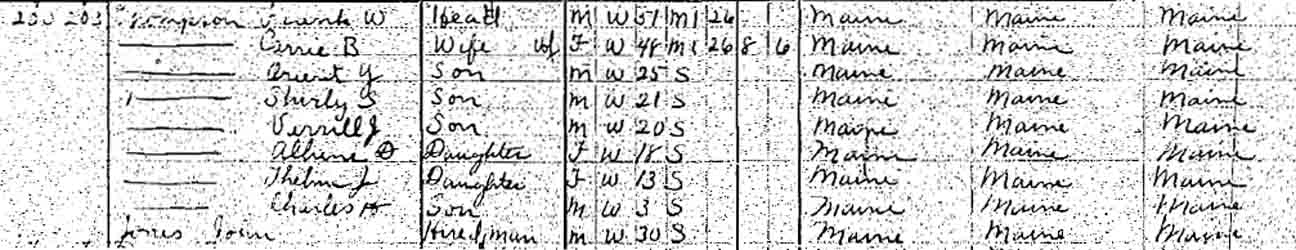 203 203 Simpson Frank W Head M W 51 M1 26 Maine Maine Maine
Carrie B Wife F W 48 M1 26 8 6 Maine Maine Maine
Orient Y Son M W 25 S Maine Maine Maine
Shirly S Son M W 21 S Maine Maine Maine
Verrill J Son M W 20 S Maine Maine Maine
Daughter F W 18 S Maine Maine Maine
Thelma J Daughter F W 13 S Maine Maine Maine
Charles H Son M W 3 S Maine Maine Maine
Jones John Hired man M W 30 S Maine Maine Maine